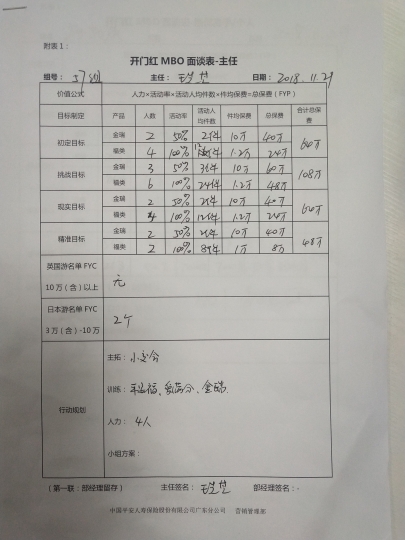 附表1：
开门红 MBO 面谈表-主任
组号： 57组 主任： 日期： 2018.11.29
价值公式 人力×活动率×活动人均件数×件均保费=总保费（FYP）
目标制定 产品 人数 活动率 活动人均件数 件均保费 总保费 合计总保费
初定目标 金瑞 2 50% 2件 10万 40万 64万
福类 4 100% 1.2万 24万
挑战目标 金瑞 3 50% 3件 10万 60万 108万
福类 6 100% 24件 1.2万 48万
现实目标 金瑞 2 50% 2件 10万 40万 64万
福类 4 100% 12件 1.2万 24万
精准目标 金瑞 2 50% 2件 10万 40万 48万
福类 2 100% 8件 1万 8万
英国游名单 FYC
10 万（含）以上 无
日本游名单 FYC
3 万（含）-10万 2个
行动规划
主拓：小交会
训练：平福福、爱满分、金瑞
人力：4人
小组方案：
（第一联：部经理留存） 主任签名： 部经理签名：-
中国平安人寿保险股份有限公司广东分公司 营销管理部